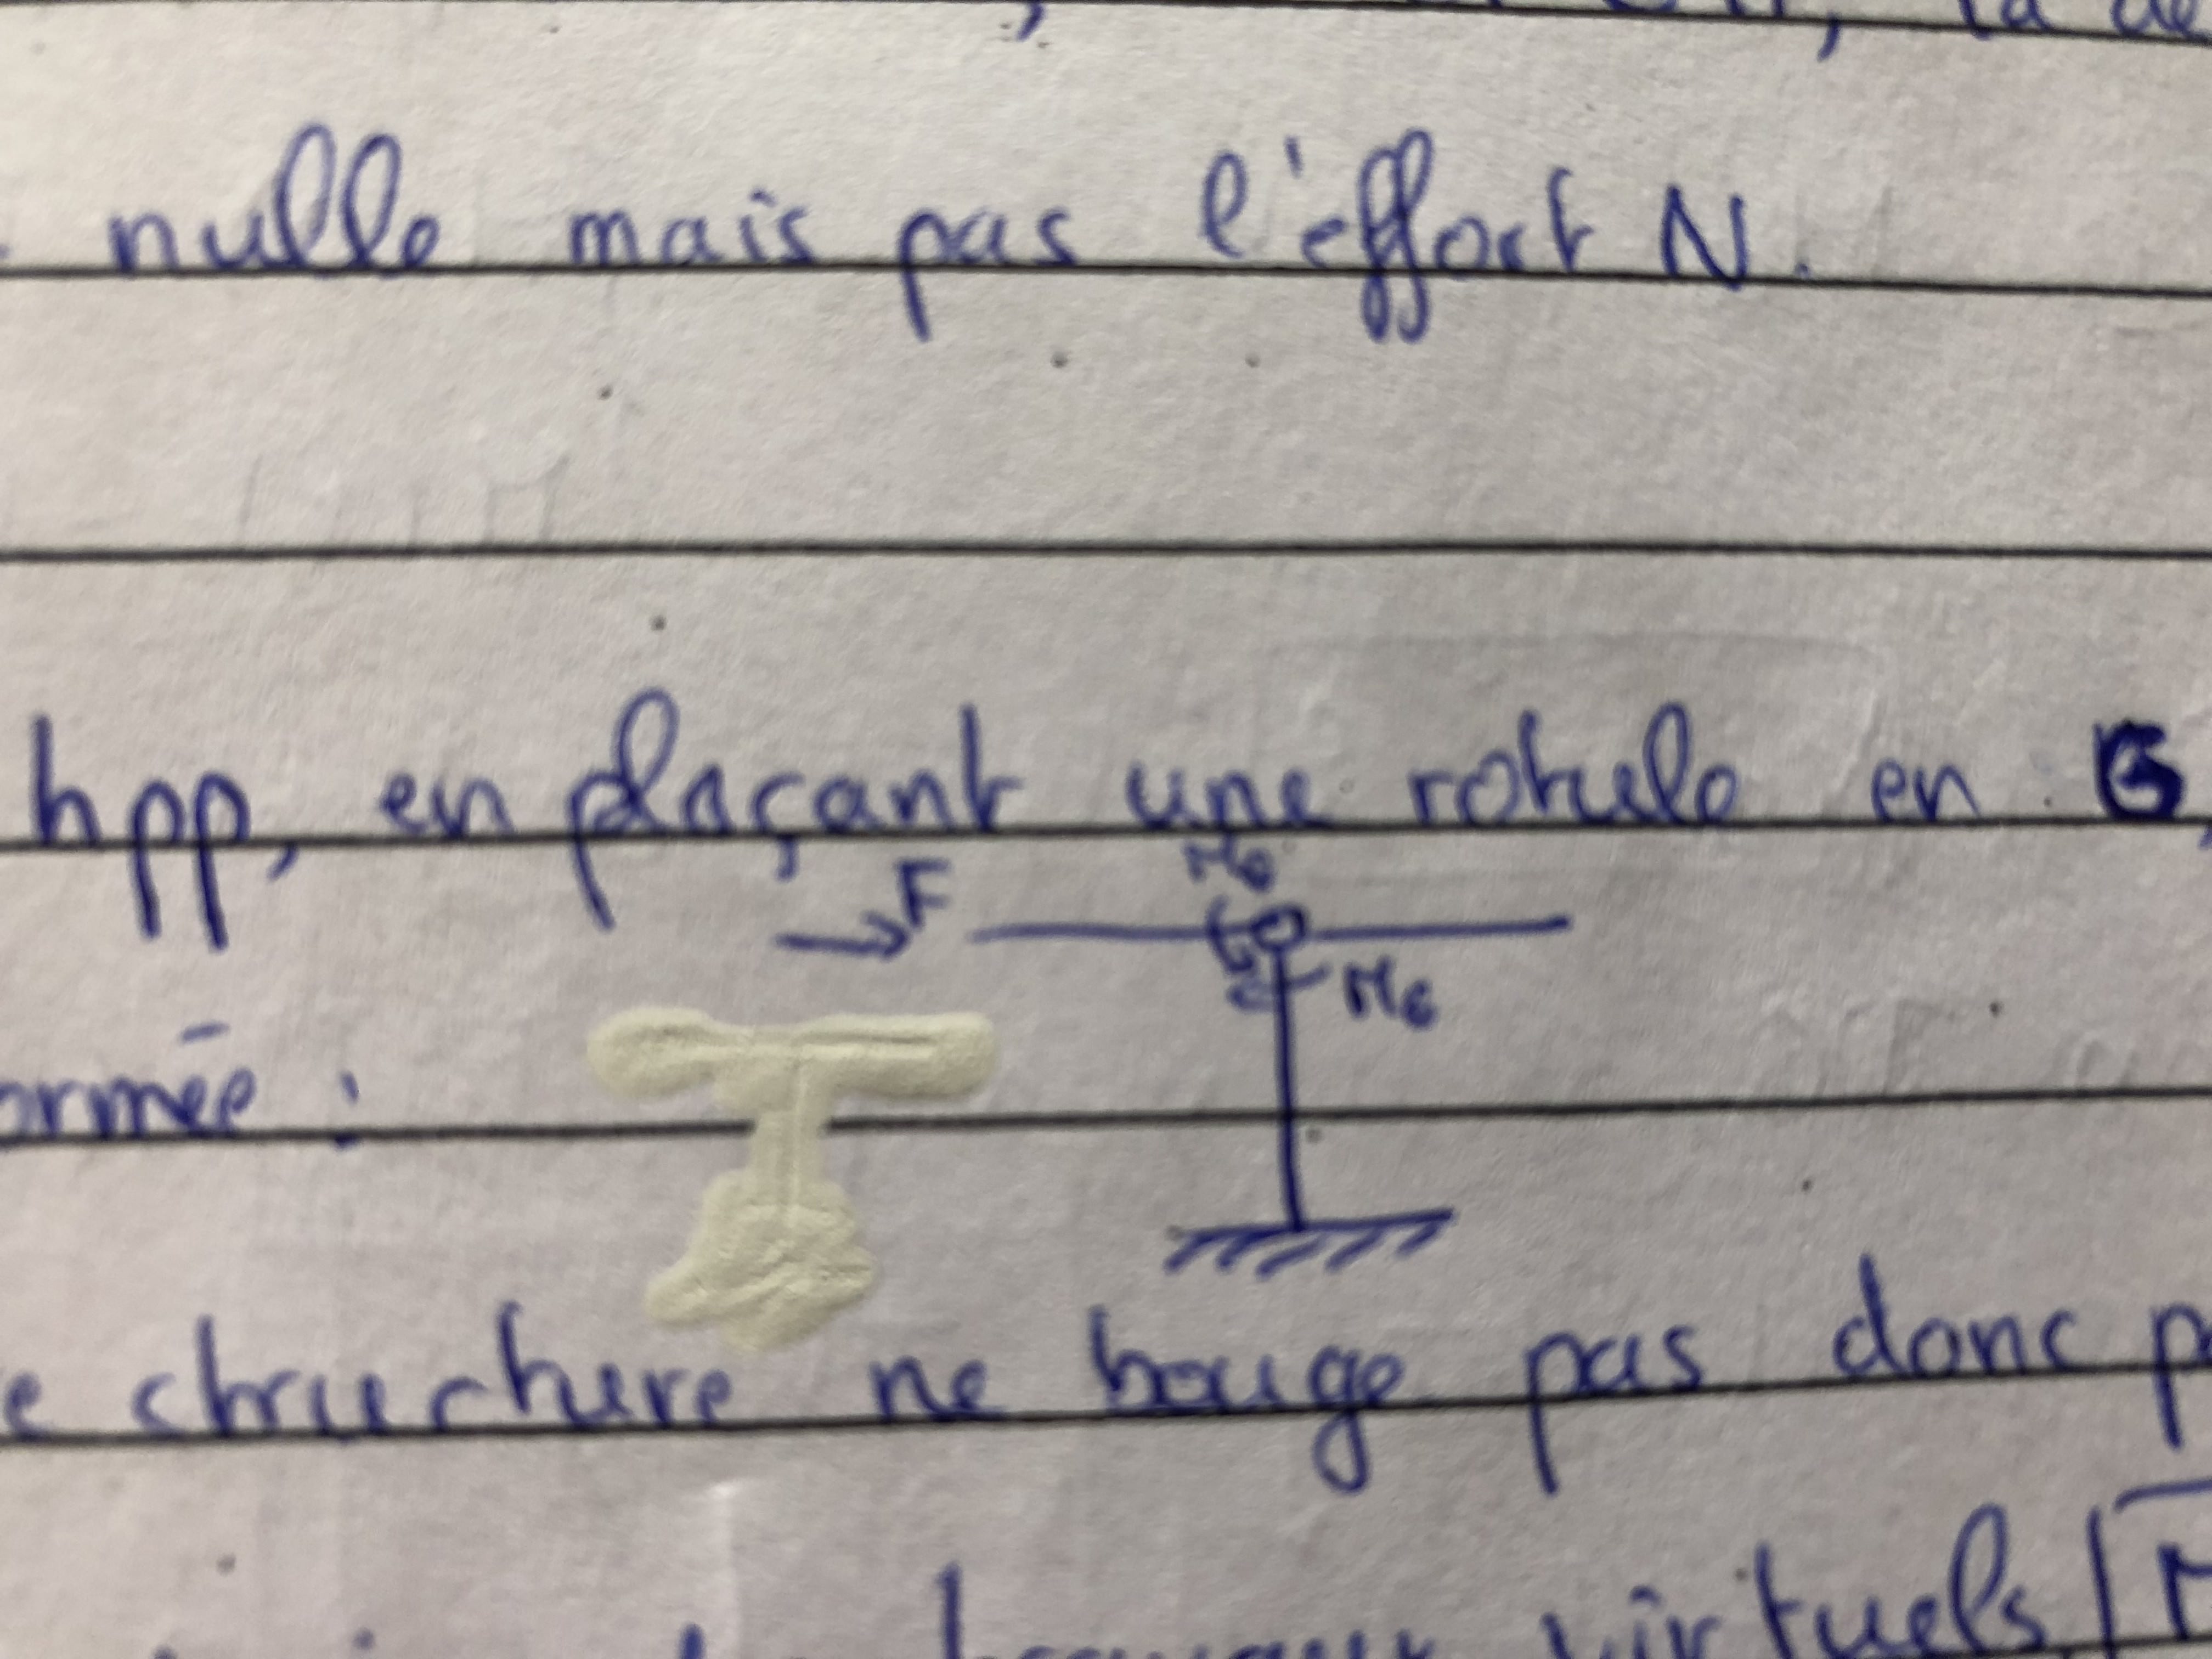 nulle mais pas l'effort N.
hpp, en plaçant une rotule en G,
F
M6
-M6
structure ne bouge pas donc
virtuels